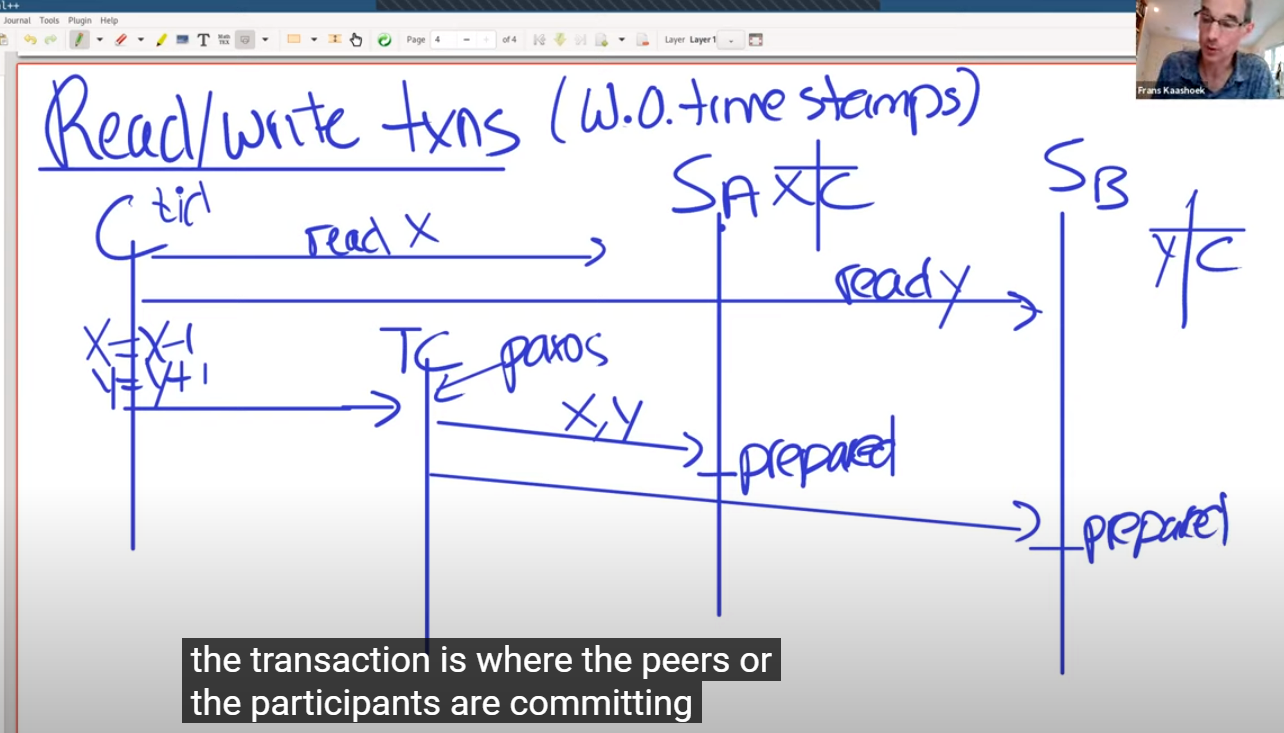 l++
Journal Tools Plugin Help
T Math TEX Page 4 of 4 Layer Layer 1
Frans Kaashoek
Read/write txns (W.O. time stamps)
C tid
SA X C
SB
Y C
read X
read y
X=X-1
Y=Y+1
TC paxos
X, Y
prepared
prepared
the transaction is where the peers or
the participants are committing